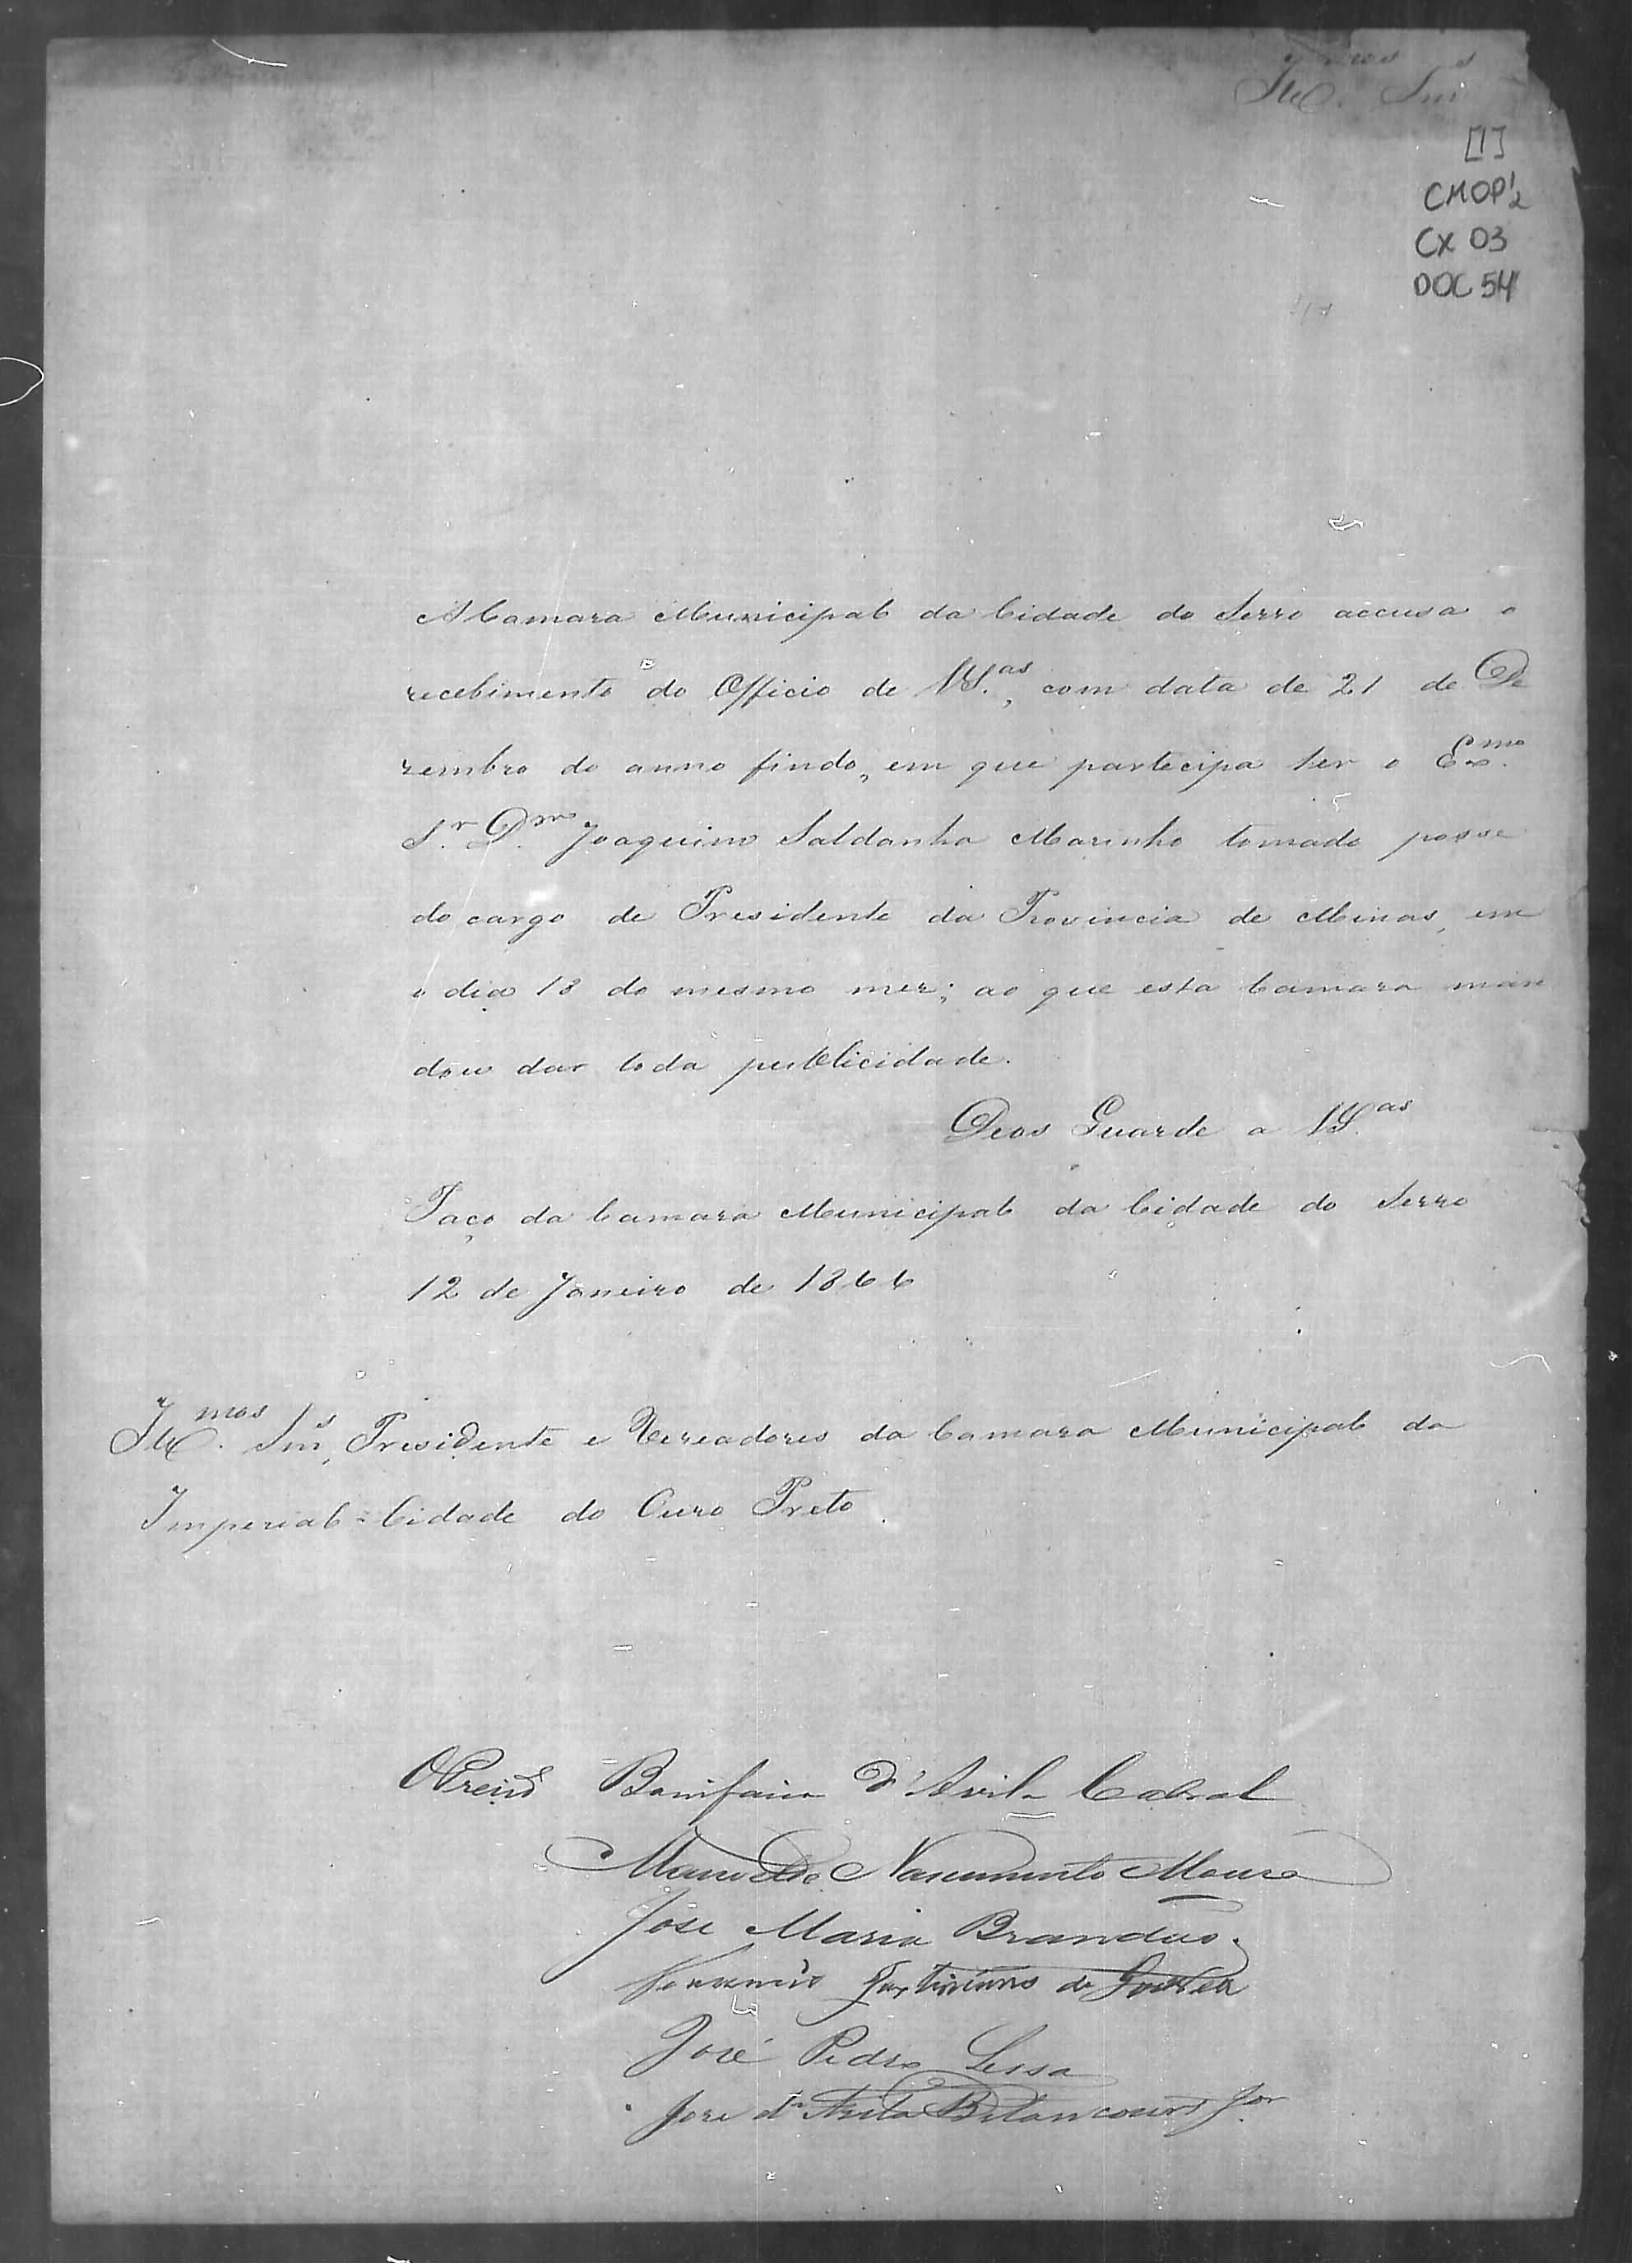 Ill.mos Snr.s
[1]
CMOP 1/2
CX 03
DOC 54
A Camara Municipal da Cidade do Serro accusa o
recebimento do Officio de VS.as, com data de 21 de De
zembro do anno findo, em que participa ter o Ex.mo
S.r D.r Joaquim Saldanha Marinho tomado posse
do cargo de Presidente da Provincia de Minas, em
o dia 18 do mesmo mez; ao que esta Camara man
dou dar toda publicidade.
Deos Guarde a VS.as
Paço da Camara Municipal da Cidade do Serro
12 de Janeiro de 1866
Ill.mos Snr.s Presidente e Vereadores da Camara Municipal da
Imperial Cidade do Ouro Preto.
Bonifacio d'Avila Cabral
Manoel do Nascimento Moura
José Maria Brandão.
José Pedro Lessa
José d'Avila Bitancourt